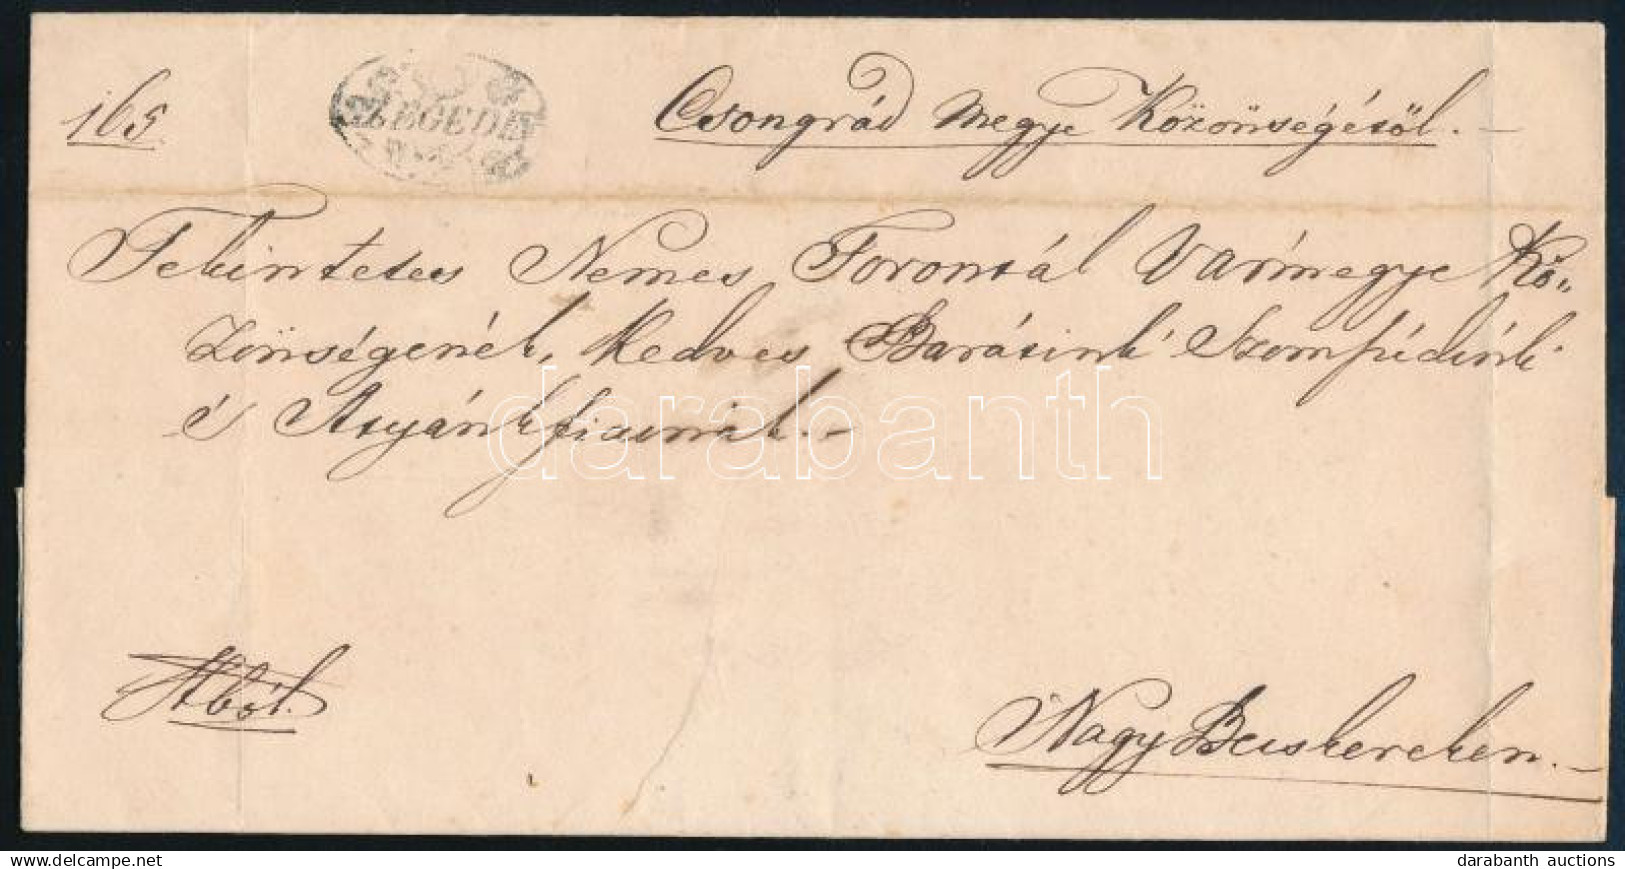 165.
SZEGEDIN
Csongrád Megye Közönségétöl.-
Tekintetes Nemes Torontál Vármegye Kö„
zönségének, Kedves Barátink Szomszédink
és Atyánkfiainak.-
Nagy Becskereken.-
darabanth
darabanth auctions